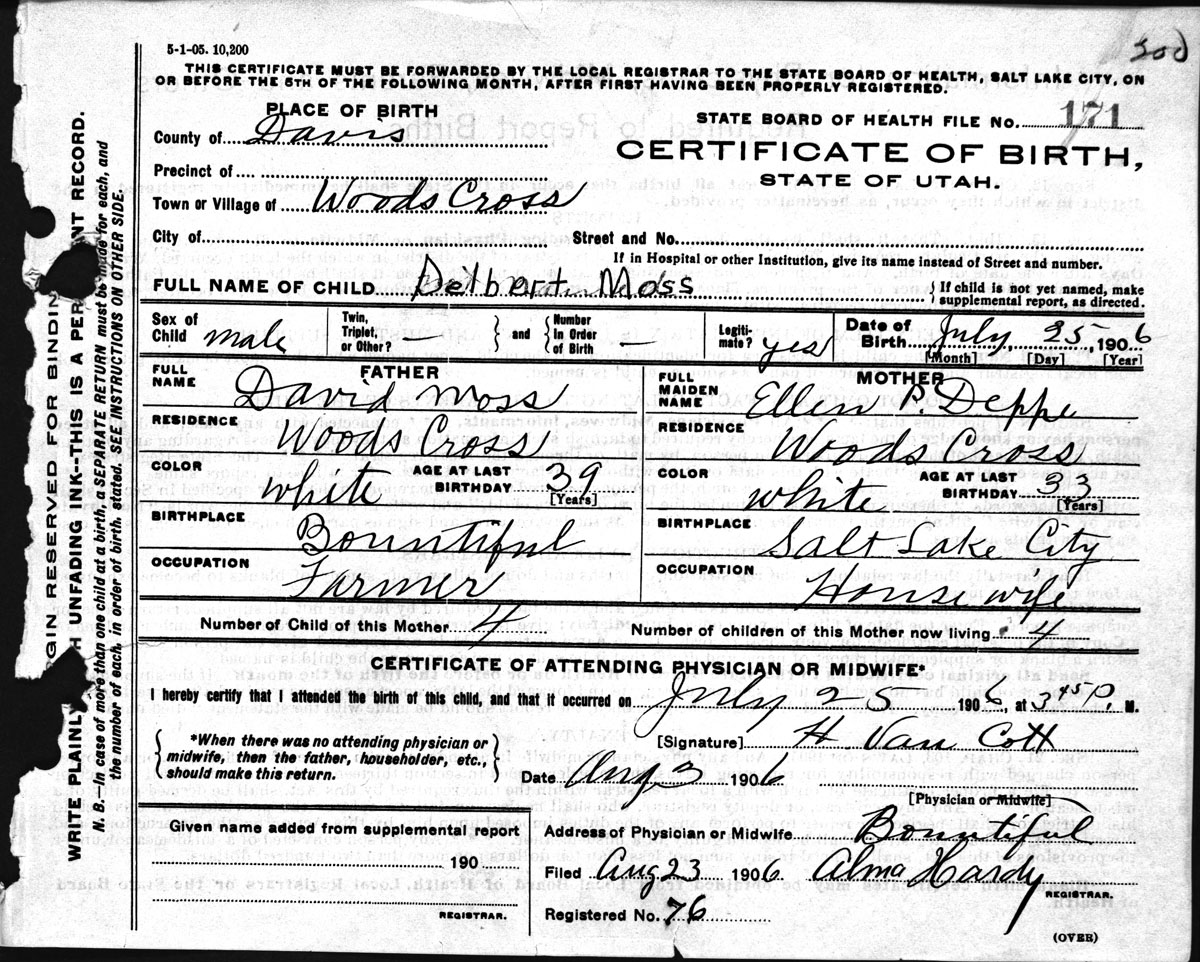 5-1-05. 10,200
300
THIS CERTIFICATE MUST BE FORWARDED BY THE LOCAL REGISTRAR TO THE STATE BOARD OF HEALTH, SALT LAKE CITY, ON
OR BEFORE THE 5TH OF THE FOLLOWING MONTH, AFTER FIRST HAVING BEEN PROPERLY REGISTERED.
PLACE OF BIRTH
STATE BOARD OF HEALTH FILE No. 171
County of Davis
CERTIFICATE OF BIRTH,
STATE OF UTAH.
Precinct of
Town or Village of Woods Cross
City of Street and No.
If in Hospital or other Institution, give its name instead of Street and number.
FULL NAME OF CHILD Delbert Moss { If child is not yet named, make
supplemental report, as directed.
Sex of Child male Twin, Triplet, or Other? — } and { Number in Order of Birth — Legiti-mate? yes Date of Birth July, 25, 1906
[Month] [Day] [Year]
FATHER MOTHER
FULL NAME David Moss FULL MAIDEN NAME Ellen P. Deppe
RESIDENCE Woods Cross RESIDENCE Woods Cross
COLOR white AGE AT LAST BIRTHDAY 39 [Years] COLOR white AGE AT LAST BIRTHDAY 33 [Years]
BIRTHPLACE Bountiful BIRTHPLACE Salt Lake City
OCCUPATION Farmer OCCUPATION Housewife
Number of Child of this Mother 4 Number of children of this Mother now living 4
CERTIFICATE OF ATTENDING PHYSICIAN OR MIDWIFE*
I hereby certify that I attended the birth of this child, and that it occurred on July 25 1906, at 3 45 P. M.
{ *When there was no attending physician or
midwife, then the father, householder, etc.,
should make this return. }
[Signature] H Van Cott
Date Aug 3 1906
[Physician or Midwife]
Given name added from supplemental report
190
REGISTRAR.
Address of Physician or Midwife Bountiful
Filed Aug 23 1906 Alma Hardy
REGISTRAR.
Registered No. 76
(OVER)
RGIN RESERVED FOR BINDIN
WRITE PLAINLY H UNFADING INK--THIS IS A PER NT RECORD.
N. B. In case of more than one child at a birth, a SEPARATE RETURN must be made for each, and
the number of each, in order of birth, stated. SEE INSTRUCTIONS ON OTHER SIDE.